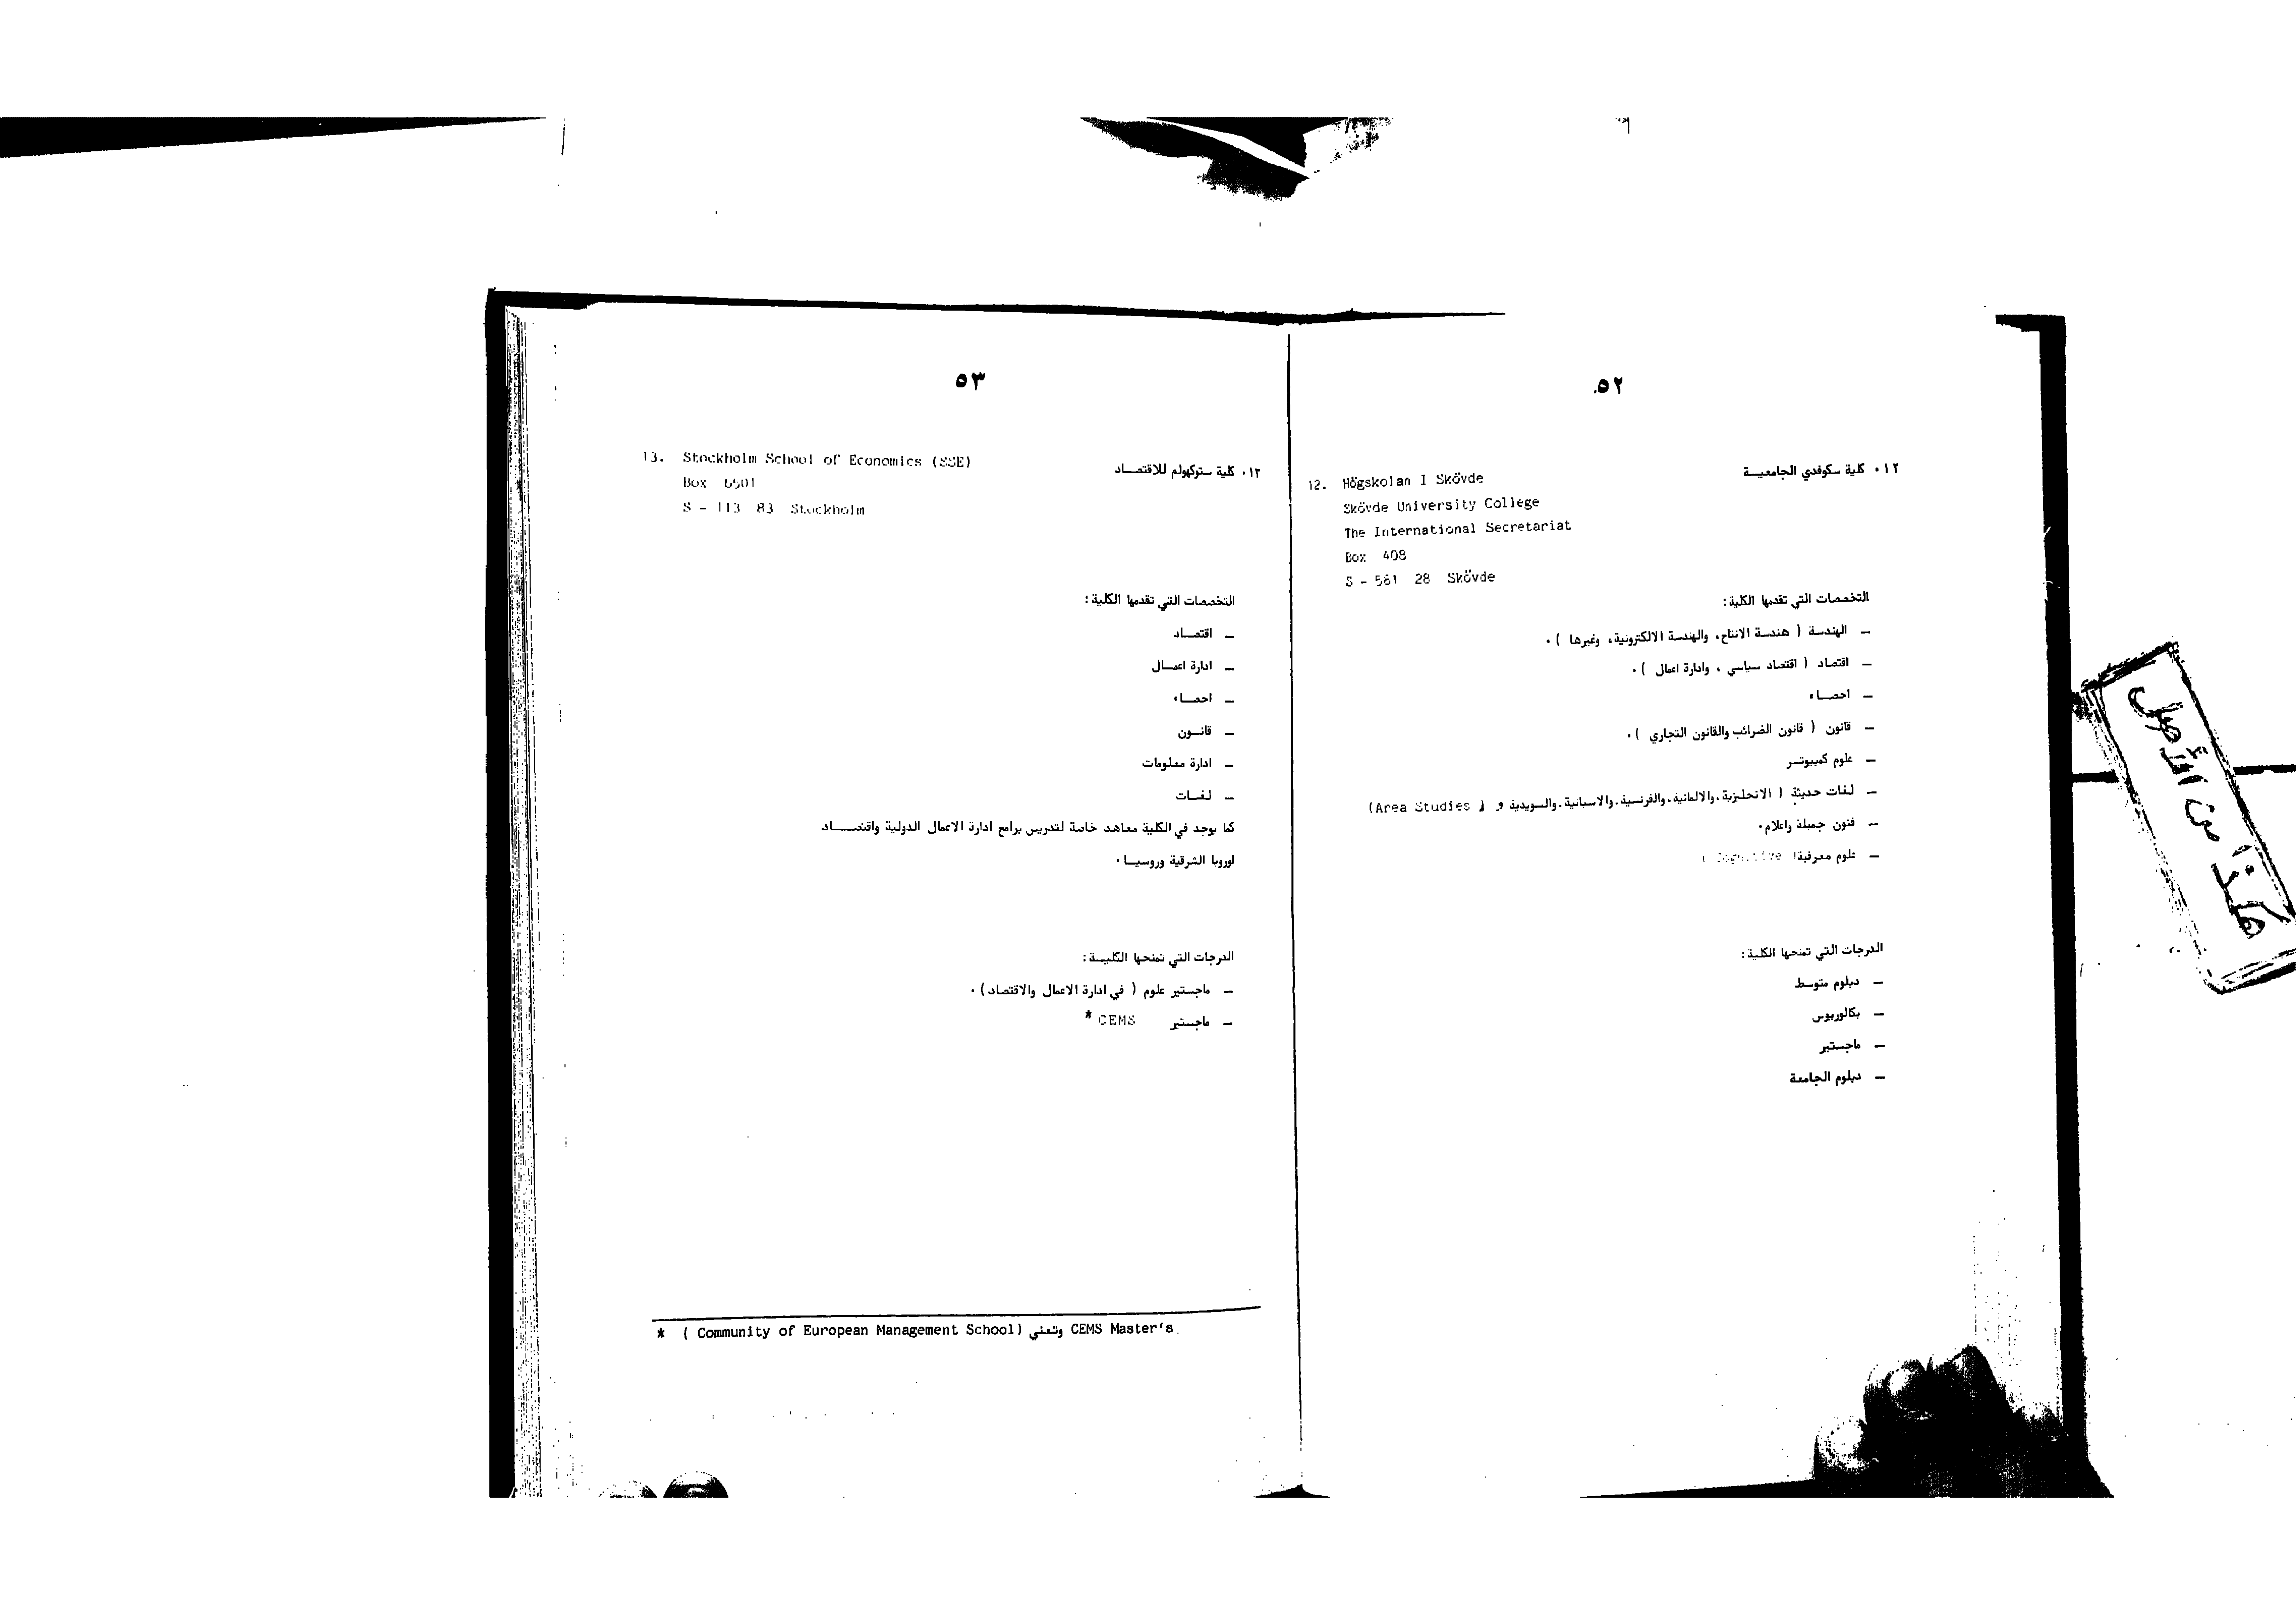 ٥٢
١٢٠ كلية سكوفدي الجامعيــة
12. Högskolan I Skövde
Skövde University College
The International Secretariat
Box 408
S - 581 28 Skövde
التخصصات التي تقدمها الكلية:
— الهندسة ( هندسة الانتاج، والهندسة الالكترونية، وغيرها ) ٠
— اقتصاد ( اقتصاد سياسي ، وادارة اعمال ) ٠
— احصــاء
— قانون ( قانون الضرائب والقانون التجاري ) ٠
— علوم كمبيوتـر
— لغات حديثة ( الانجليزية، والالمانية، والفرنسية، والاسبانية، والسويدية و (Area Studies )
— فنون جميلة واعلام٠
— علوم معرفية( Cognitive )
الدرجات التي تمنحها الكلية:
— دبلوم متوسط
— بكالوريوس
— ماجستير
— دبلوم الجامعة
٥٣
١٣٠ كلية ستوكهولم للاقتصــاد
13. Stockholm School of Economics (SSE)
Box 6501
S - 113 83 Stockholm
التخصصات التي تقدمها الكلية:
— اقتصــاد
— ادارة اعمــال
— احصــاء
— قانــون
— ادارة معلومات
— لغــات
كما يوجد في الكلية معاهد خاصة لتدريس برامج ادارة الاعمال الدولية واقتصــــاد
اوروبا الشرقية وروسيــا ٠
الدرجات التي تمنحها الكليــة:
— ماجستير علوم ( في ادارة الاعمال والاقتصاد) ٠
— ماجستير CEMS *
* ( Community of European Management School) وتعني CEMS Master's
هكذا من الأصل